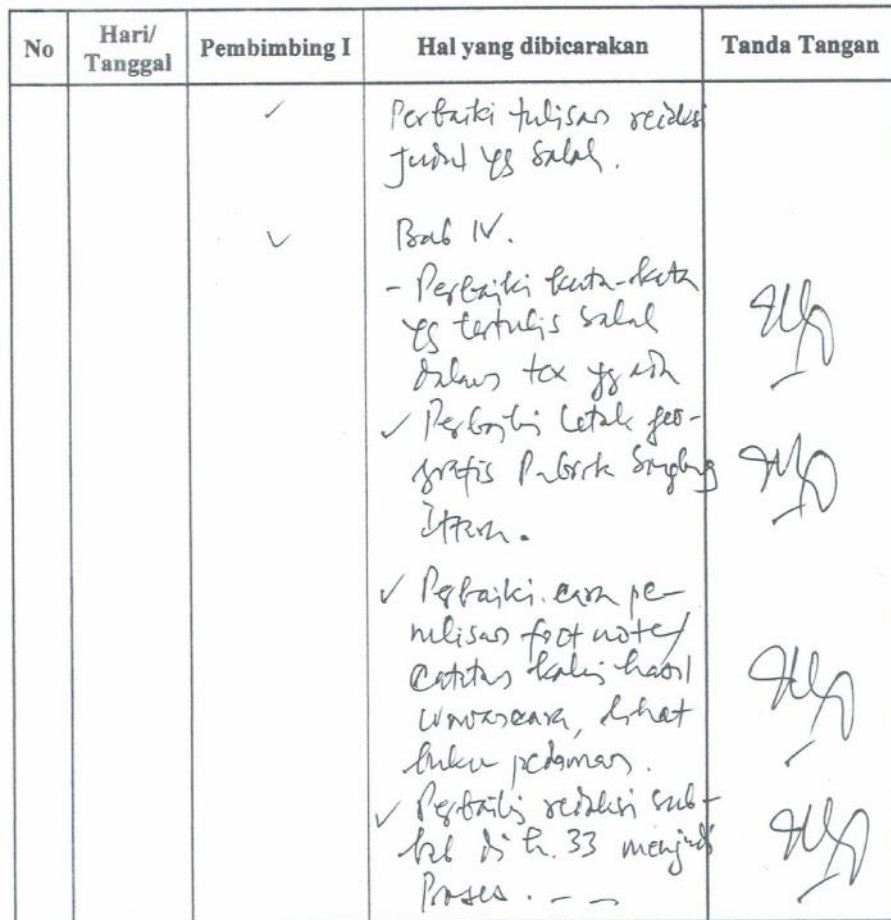 No Hari/ Tanggal Pembimbing I Hal yang dibicarakan Tanda Tangan
✓ Perbaiki tulisan redaksi
judul yg salah.
✓ Bab IV.
- Perbaiki kata-kata
yg tertulis salah
dalam tex yg ada
✓ Perbaiki letak geo-
grafis Pabrik
✓ Perbaiki cara pe-
nulisan footnote/
catatan kaki hasil
wawancara, lihat
buku pedoman.
✓ Perbaiki redaksi sub-
bab di h. 33 menjadi
Proses . - -